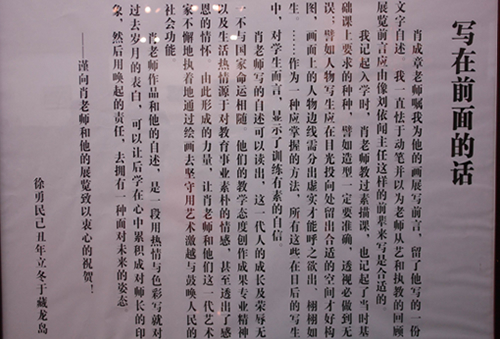 写在前面的话
肖成章老师嘱我为他的画展写前言，留了他写的一份
文字自述。我一直怯于动笔并以为老师从艺和执教的回顾
展览前言应由像刘依闻主任这样的前辈来写是合适的。
我记起入学时，肖老师教过素描课，也记起了当时基
础课上要求的种种，譬如造型一定要准确，透视必做到无
误；譬如人物写生应在目光投向处留出合适的空间才好构
图，画面上的人物边线需分出虚实才能呼之欲出、栩栩如
生。……作为一种应掌握的方法，所有这些在日后的写生
中，对学生而言，显示了训练有素的自信。
肖老师写的自述可以读出，这一代人的成长及荣辱无
一不与国家命运相随。他们的教学态度创作成果专业精神
以及生活热情源于对教育事业素朴的情感，甚至透出了感
恩的情怀。由此形成的力量，让肖老师和他们这一代艺术
家不懈地执着地通过绘画去坚守用艺术激越与鼓唤人民的
社会功能。
肖老师作品和他的自述，是一段用热情与色彩写就对
过去岁月的表白，可以让后学在心中累积成对师长的印
象，然后用唤起的责任，去拥有一种面对未来的姿态。
——谨向肖老师和他的展览致以衷心的祝贺！
徐勇民己丑年立冬于藏龙岛